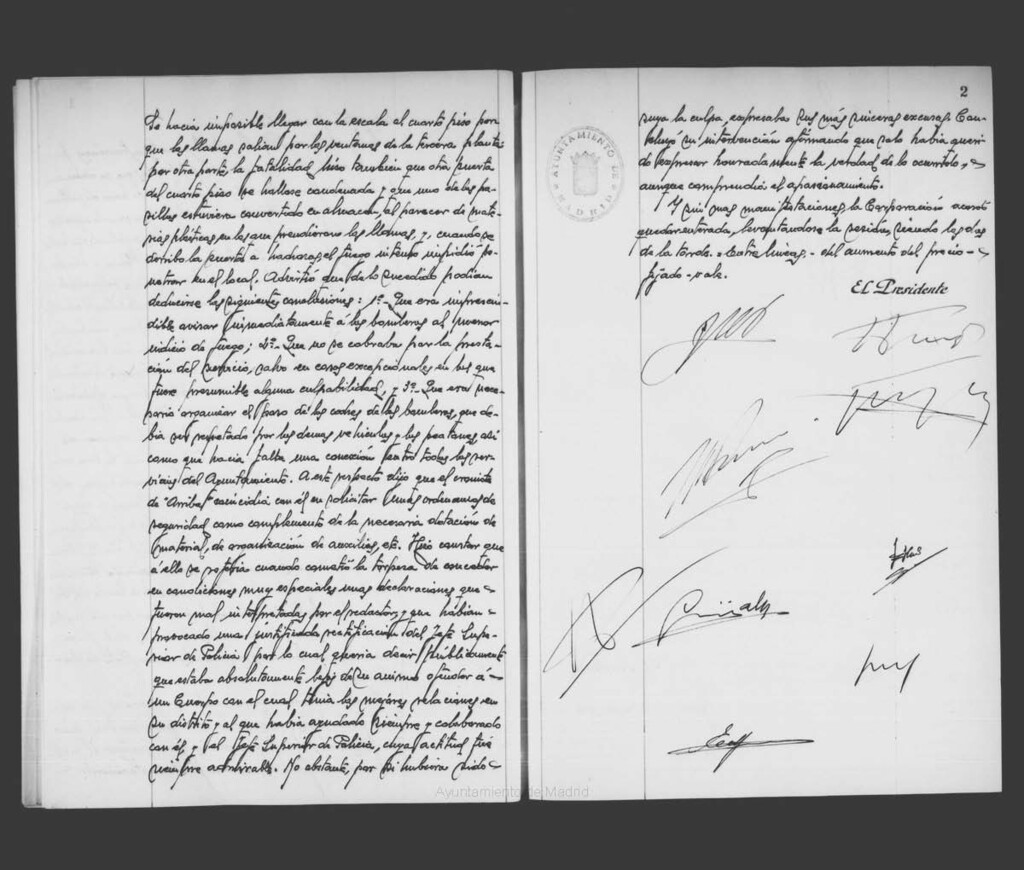 to hacía imposible llegar con la escala al cuarto piso por-
que las llamas salían por las ventanas de la tercera planta;
por otra parte, la fatalidad hizo también que otra puerta
del cuarto piso se hallase condenada y que uno de los pa-
sillos estuviera convertido en almacén, al parecer de mate-
rias plásticas en las que prendieron las llamas, y, cuando se
derribó la puerta a hachazos, el fuego intenso impidió pe-
netrar en el local. Advirtió que de lo sucedido podían
deducirse las siguientes conclusiones: 1º.- Que era imprescin-
dible avisar inmediatamente á los bomberos al menor
indicio de fuego; 2º.- Que no se cobraba por la presta-
ción del servicio, salvo en casos excepcionales en los que
fuere presumible alguna culpabilidad, y 3º.- Que era nece-
sario organizar el paso de los coches de los bomberos, que de-
bía ser respetado por los demás vehículos y los peatones así
como que hacía falta una conexión entre todos los ser-
vicios del Ayuntamiento. A este respecto dijo que el cronista
de "Arriba" coincidía con él en solicitar unas ordenanzas de
seguridad como complemento de la necesaria dotación de
material, de organización de auxilios, etc. Hizo constar que
á ello se refería cuando cometió la torpeza de conceder
en condiciones muy especiales unas declaraciones que
fueron mal interpretadas por el redactor, y que habían
provocado una justificada rectificación del Jefe Supe-
rior de Policía, por lo cual quería decir públicamente
que estaba absolutamente lejos de su ánimo ofender á
un Cuerpo con el cual tenía las mejores relaciones en
su distrito y al que había ayudado siempre y colaborado
con él, y el Jefe Superior de Policía, cuya actitud fué
siempre admirable. No obstante, por si hubiera sido
2
suya la culpa, expresaba sus más sinceras excusas. Con-
cluyó su intervención afirmando que solo había queri-
do expresar honradamente la verdad de lo ocurrido,
aunque comprendía el apasionamiento.
Y sin mas manifestaciones, la Corporación acordó
quedar enterada, levantándose la sesión, siendo las dos
de la tarde. Entre líneas.- del aumento del precio-
fijado - vale.
El Presidente
AYUNTAMIENTO DE
MADRID
Ayuntamiento de Madrid